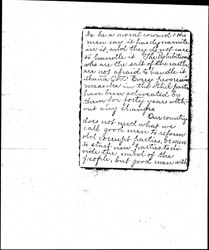 to be a moral coward. The
men say it has dynamite
in it, and they do not care
to handle it. The Prohibitionists
who are the salt of the earth
are not afraid to handle it
Every
made in the third party
have been advocated by
them for forty years with-
out any change
Our country
does not need what we
call good men to reform
old corrupt parties, or men
to start new parties to di-
vide the mind of the
people, but good men with